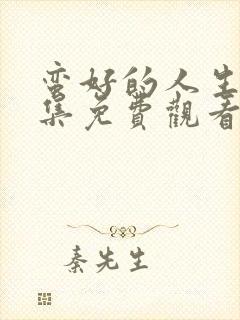 蛮好的人生
集免費觀看
秦先生